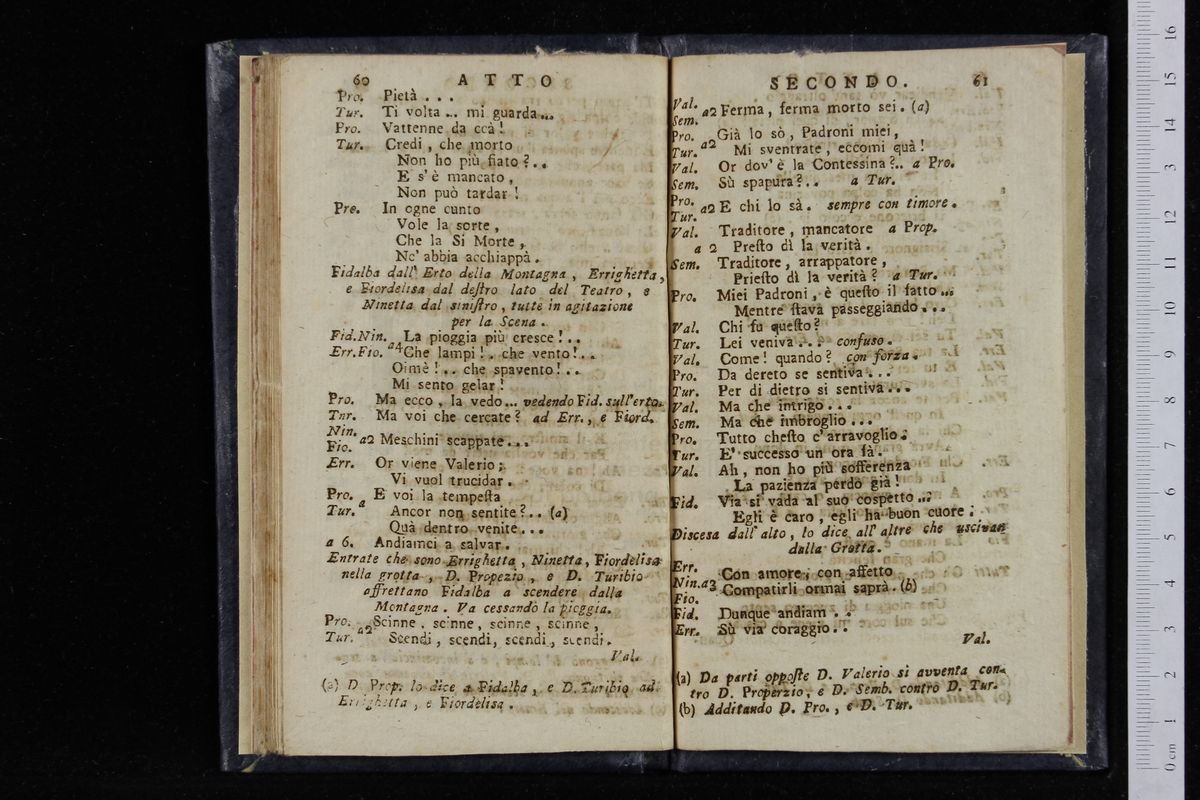 60 ATTO
Pro. Pietà . . .
Tur. Ti volta ... mi guarda ...
Pro. Vattenne da ccà !
Tur. Credi , che morto
Non ho più fiato ? . .
E s'è mancato ,
Non può tardar !
Pre. In ogne cunto
Vole la sorte ,
Che la Si Morte ,
Nc' abbia acchiappà .
Fidalba dall' Erto della Montagna , Errighetta ,
e Fiordelisa dal deſtro lato del Teatro , e
Ninetta dal siniſtro , tutte in agitazione
per la Scena .
Fid.Nin. La pioggia più cresce ! . .
Err.Fio. a4 Che lampi ! . che vento ! . .
Oimè ! . . che spavento ! . .
Mi sento gelar !
Pro. Ma ecco , la vedo ... vedendo Fid. sull'erto.
Tnr. Ma voi che cercate ? ad Err. , e Fiord.
Nin.
Fio. a2 Meschini scappate . . .
Err. Or viene Valerio ;
Vi vuol trucidar .
Pro. E voi la tempeſta
Tur. a Ancor non sentite ? . . (a)
Quà dentro venite . . .
a 6. Andiamci a salvar .
Entrate che sono Errighetta , Ninetta , Fiordelisa
nella grotta , D. Propezio , e D. Turibio
affrettano Fidalba a scendere dalla
Montagna . Va cessando la pioggia.
Pro. Scinne , scinne , scinne , scinne ,
Tur. a2 Scendi , scendi , scendi , scendi .
Val.
(a) D. Prop. lo dice a Fidalba , e D. Turibio ad
Errighetta , e Fiordelisa .
SECONDO. 61
Val.
Sem. a2 Ferma , ferma morto sei . (a)
Pro. Già lo sò , Padroni miei ,
Tur. a2 Mi sventrate , eccomi quà !
Val. Or dov' è la Contessina ? .. a Pro.
Sem. Sù spapura ? . . a Tur.
Pro.
Tur. a2 E chi lo sà . sempre con timore .
Val. Traditore , mancatore a Prop.
a 2 Preſto dì la verità .
Sem. Traditore , arrappatore ,
Prieſto dì la verità ? a Tur.
Pro. Miei Padroni , è queſto il fatto ...
Mentre ſtava passeggiando . . .
Val. Chi fu queſto ?
Tur. Lei veniva . . . confuso .
Val. Come ! quando ? con forza .
Pro. Da dereto se sentiva . . .
Tur. Per di dietro si sentiva . . .
Val. Ma che intrigo . . .
Sem. Ma che imbroglio . . .
Pro. Tutto cheſto c' arravoglio .
Tur. E' successo un ora fà .
Val. Ah , non ho più sofferenza
La pazienza perdo già !
Fid. Via si vada al suo cospetto ...
Egli è caro , egli ha buon cuore .
Discesa dall' alto , lo dice all' altre che uscivan
dalla Grotta .
Err. Con amore , con affetto
Nin.a3 Compatirli ormai saprà . (b)
Fio.
Fid. Dunque andiam . . .
Err. Sù via coraggio . .
Val.
(a) Da parti oppoſte D. Valerio si avventa con-
tro D. Properzio , e D. Semb. contro D. Tur.
(b) Additando D. Pro. , e D. Tur.
16
15
14
13
12
11
10
9
8
7
6
5
4
3
2
1
0 cm